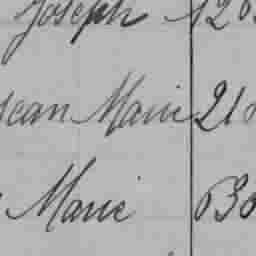 Joseph 120
Jean Marie 21
Marie B